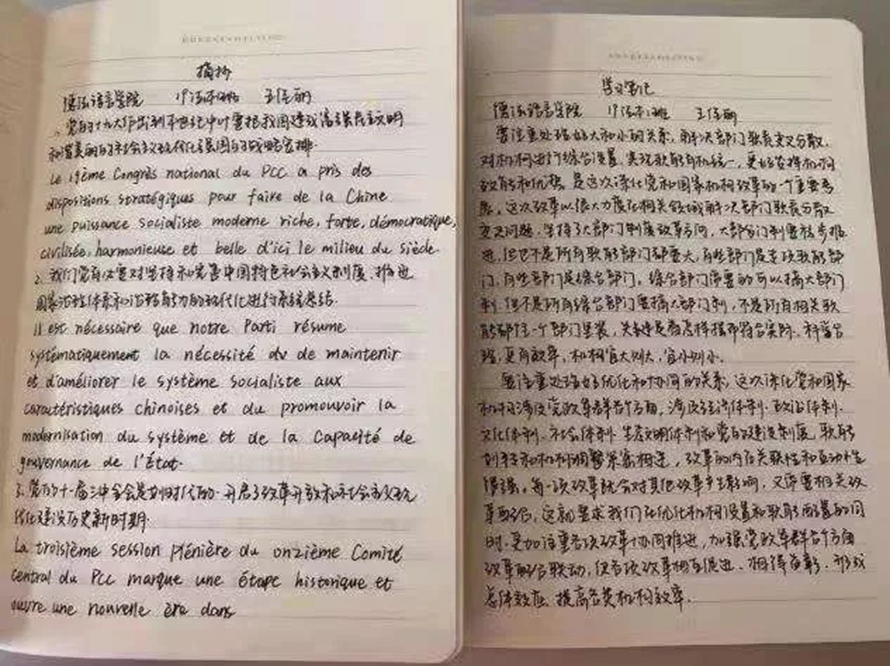 摘抄
德法语言学院 19法本1班 王佳丽
1. 党的十九大作出到本世纪中叶要把我国建成富强民主文明
和谐美丽的社会主义现代化强国的战略安排.
Le 19ème Congrès national du PCC a pris des
dispositions stratégiques pour faire de la Chine
une puissance socialiste moderne riche, forte, démocratique,
civilisée, harmonieuse et belle d'ici le milieu du siècle.
2. 我们党有必要对坚持和完善中国特色社会主义制度、推进
国家治理体系和治理能力的现代化进行系统总结.
Il est nécessaire que notre Parti résume
systématiquement la nécessité dv de maintenir
et d'améliorer le système socialiste aux
caractéristiques chinoises et du promouvoir la
modernisation du système et de la capacité de
gouvernance de l'État.
3. 党的十一届三中全会是划时代的. 开启了改革开放和社会主义现
代化建设历史新时期.
La troisième session plénière du onzième Comité
central du PCC marque une étape historique et
ouvre une nouvelle ère dans
学习笔记
德法语言学院 19法本1班 王佳丽
要注重处理好大和小的关系, 解决部门职责交叉分散,
对机构进行综合设置, 实现职能有机统一, 更好发挥机构
效能和优势, 是这次深化党和国家机构改革的一个重要考
虑, 这次改革以很大力度在相关领域解决部门职责分散
交叉问题, 坚持了大部门制度改革方向, 大部门制要稳步推
进, 但也不是所有职能部门都要大, 有些部门是专项职能部
门, 有些部门是综合部门, 综合部门需要的可以搞大部门
制, 但不是所有综合部门要搞大部门制, 不是所有相关职
能都往一个部门里装, 关键是看怎样摆布符合实际、科学合
理, 更有效率, 机构宜大则大, 宜小则小.
要注重处理好优化和协同的关系, 这次深化党和国家
机构涉及党政军群各个方面, 涉及经济体制、政治体制、
文化体制、社会体制、生态文明体制和党的建设制度, 职能
划转和机构调整紧密相连, 改革的内在关联性和互动性
很强, 每一项改革既会对其他改革产生影响, 又需要相关改
革配合, 这就要求我们在优化机构设置和职能配置的同
时, 更加注重各项改革协同推进, 加强党政军群各个方面
改革配合联动, 使各项改革相互促进、相得益彰, 形成
总体效应 提高各类机构效率.